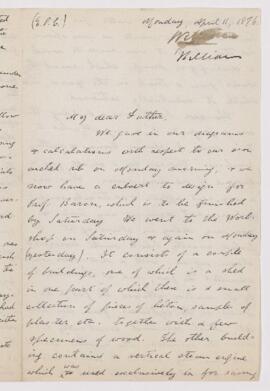 (E.P.C.)
Monday April 11, 1896
William
My dear Father,
We gave in our diagrams
& calculations with respect to our
arched rib on Monday morning, & we
now have a culvert to design for
Prof. Baron, which is to be finished
by Saturday. We went to the Work-
shop on Saturday & again on Monday
(yesterday). It consists of a couple
of buildings, one of which is a shed
in one part of which there is a small
collection of pieces of beton, samples of
plaster etc. together with a few
specimens of wood. The other build-
ing contains a vertical steam engine
which was used exclusively in for sawing